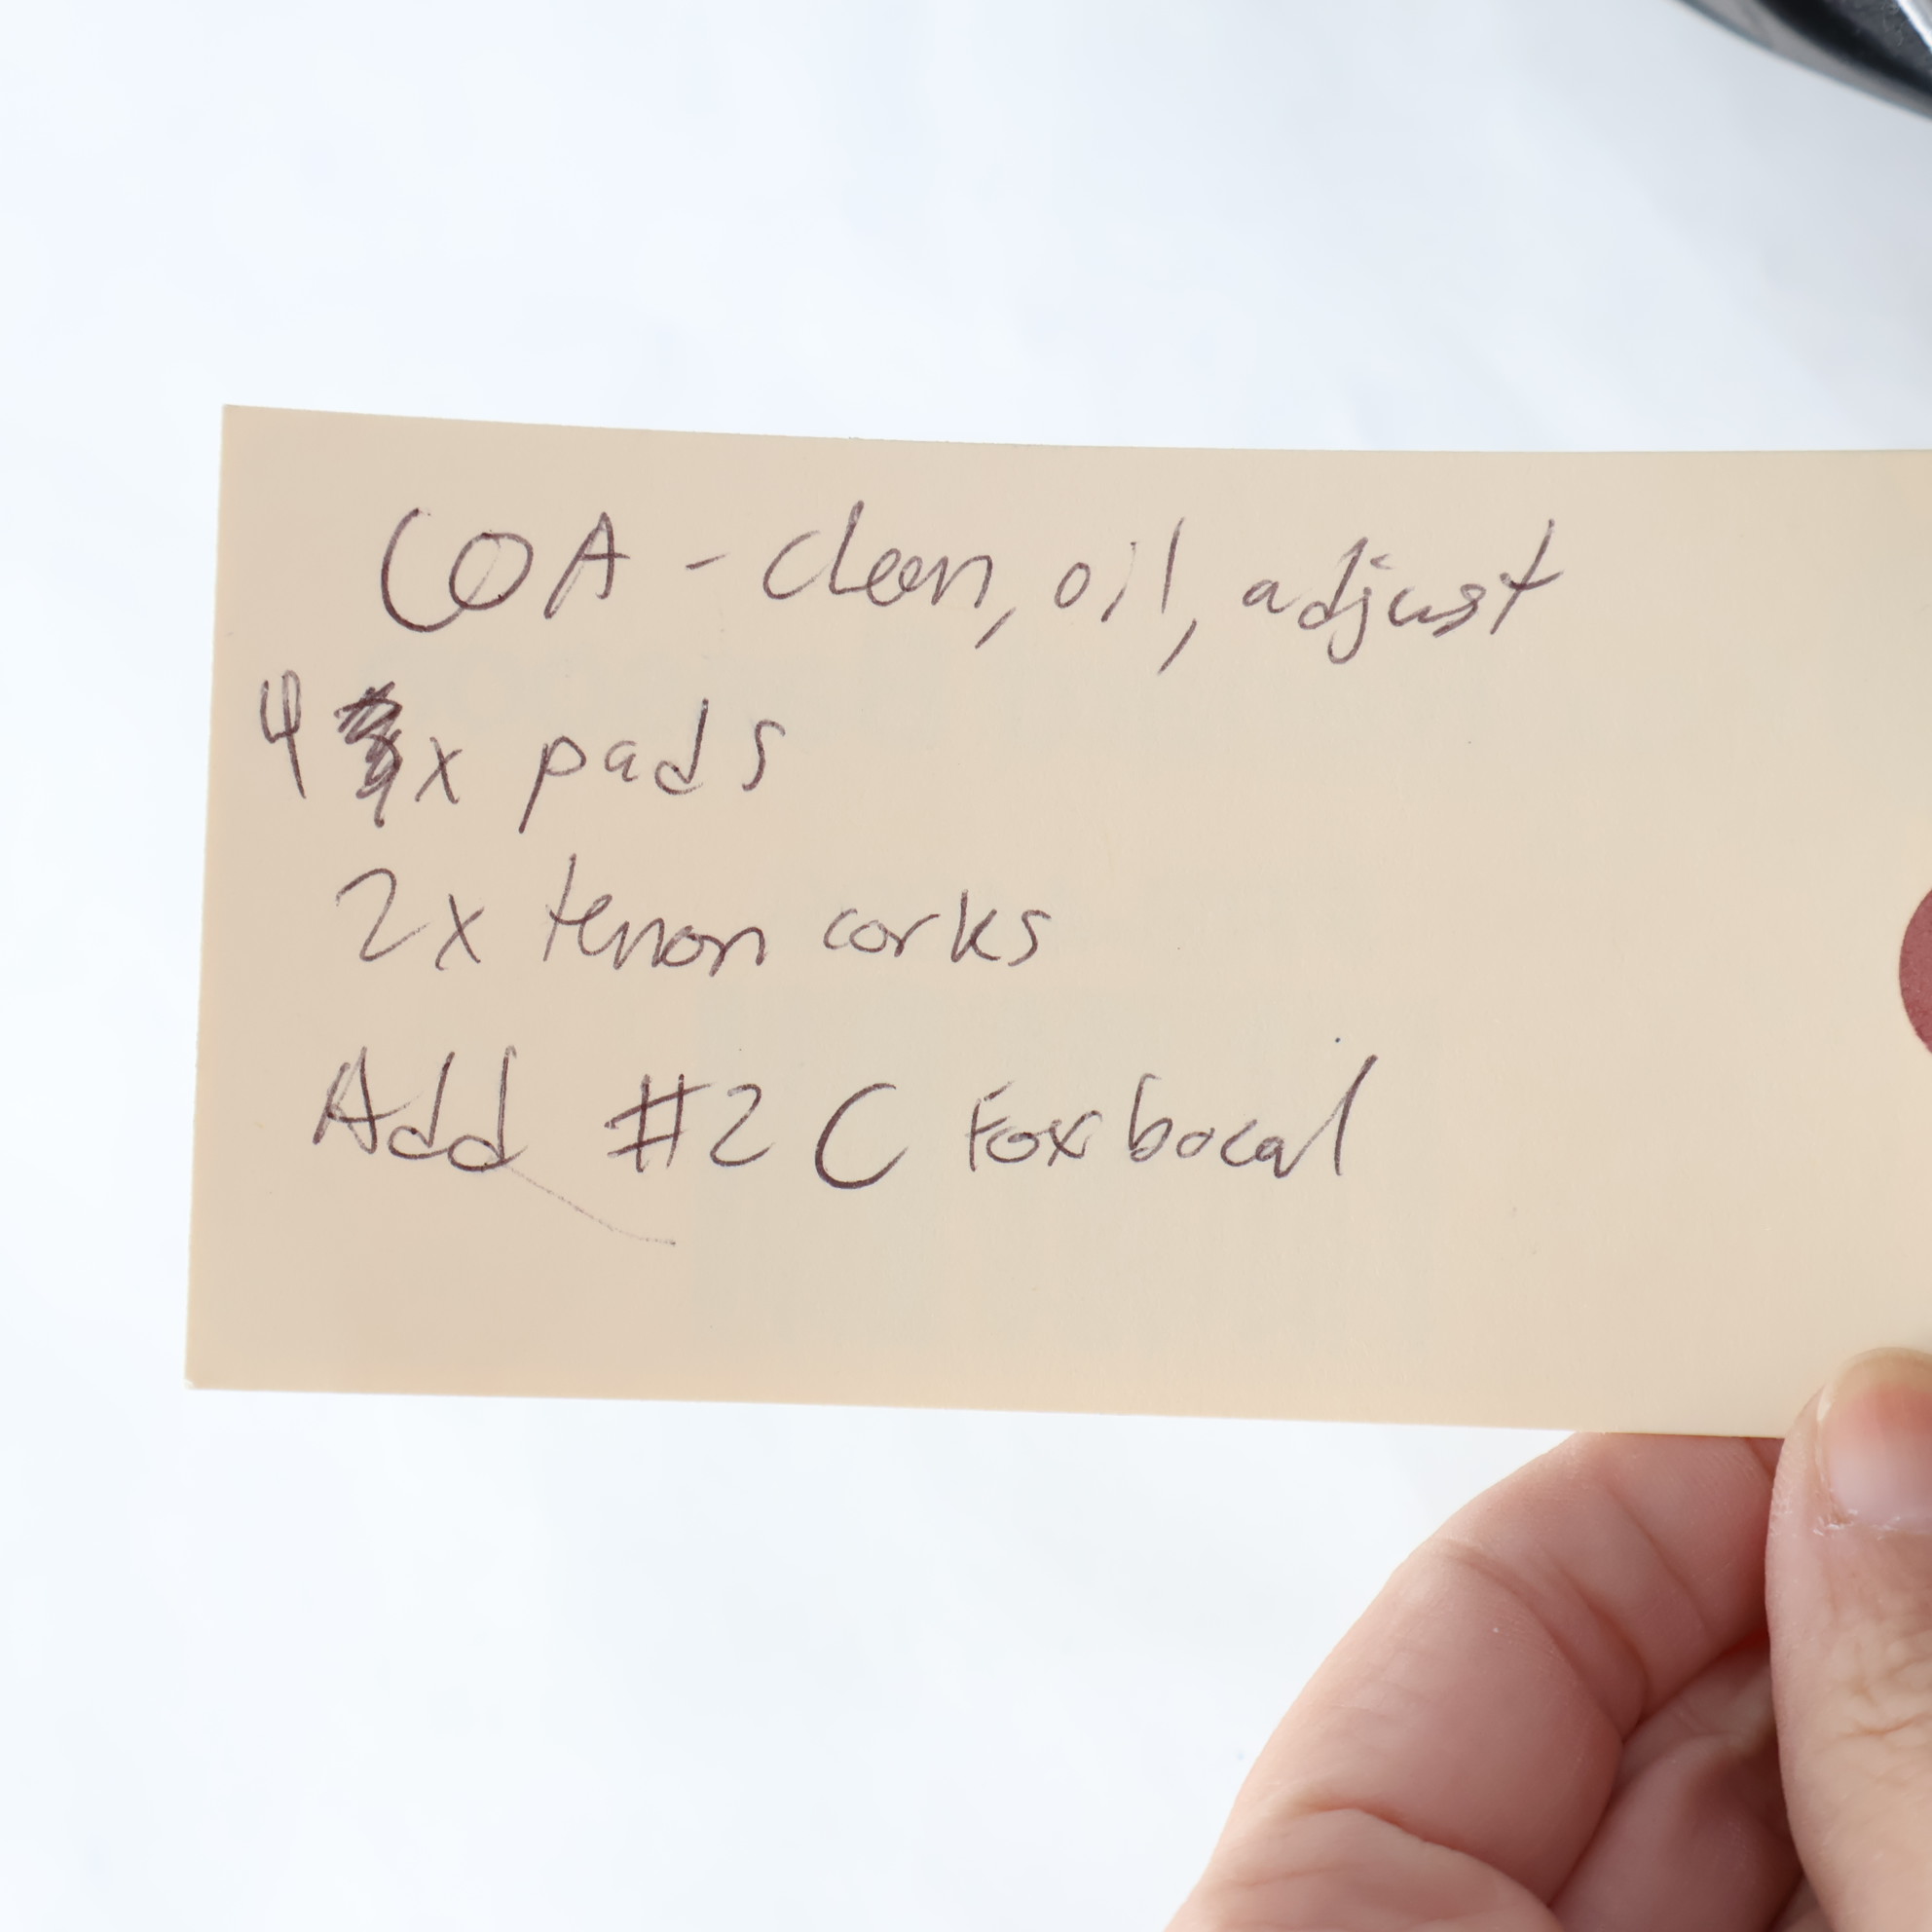 COA - clean, oil, adjust
4 x pads
2x tenon corks
Add #2 C Fox bocal